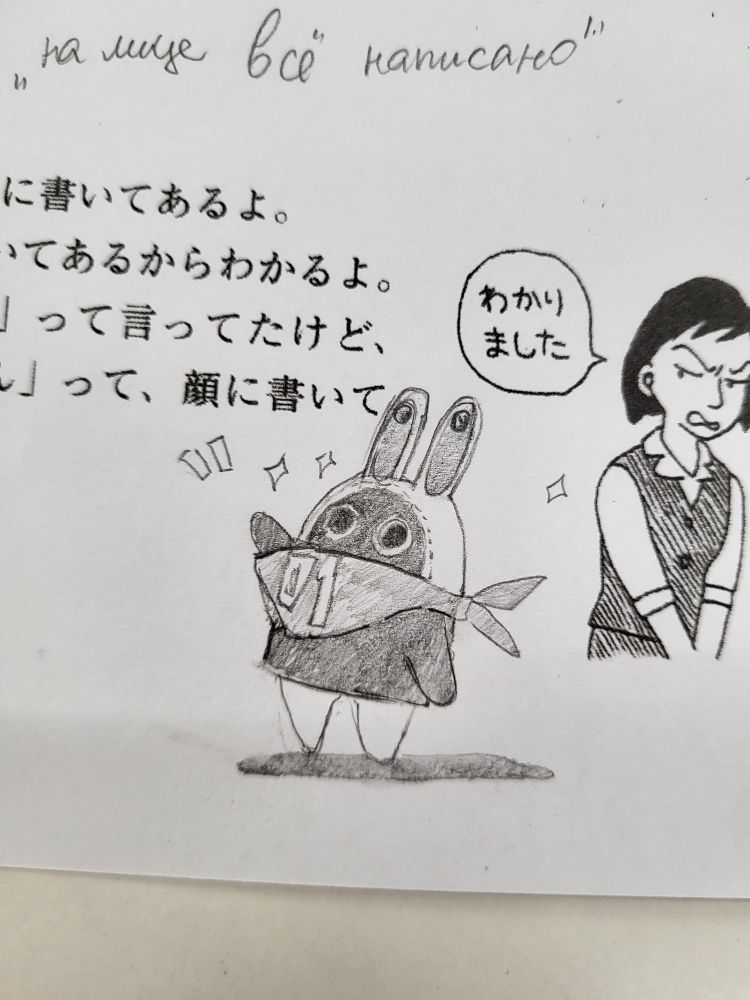 „на лице всё" написано"
に書いてあるよ。
いてあるからわかるよ。
」って言ってたけど、
ん」って、顔に書いて
わかり
ました
01